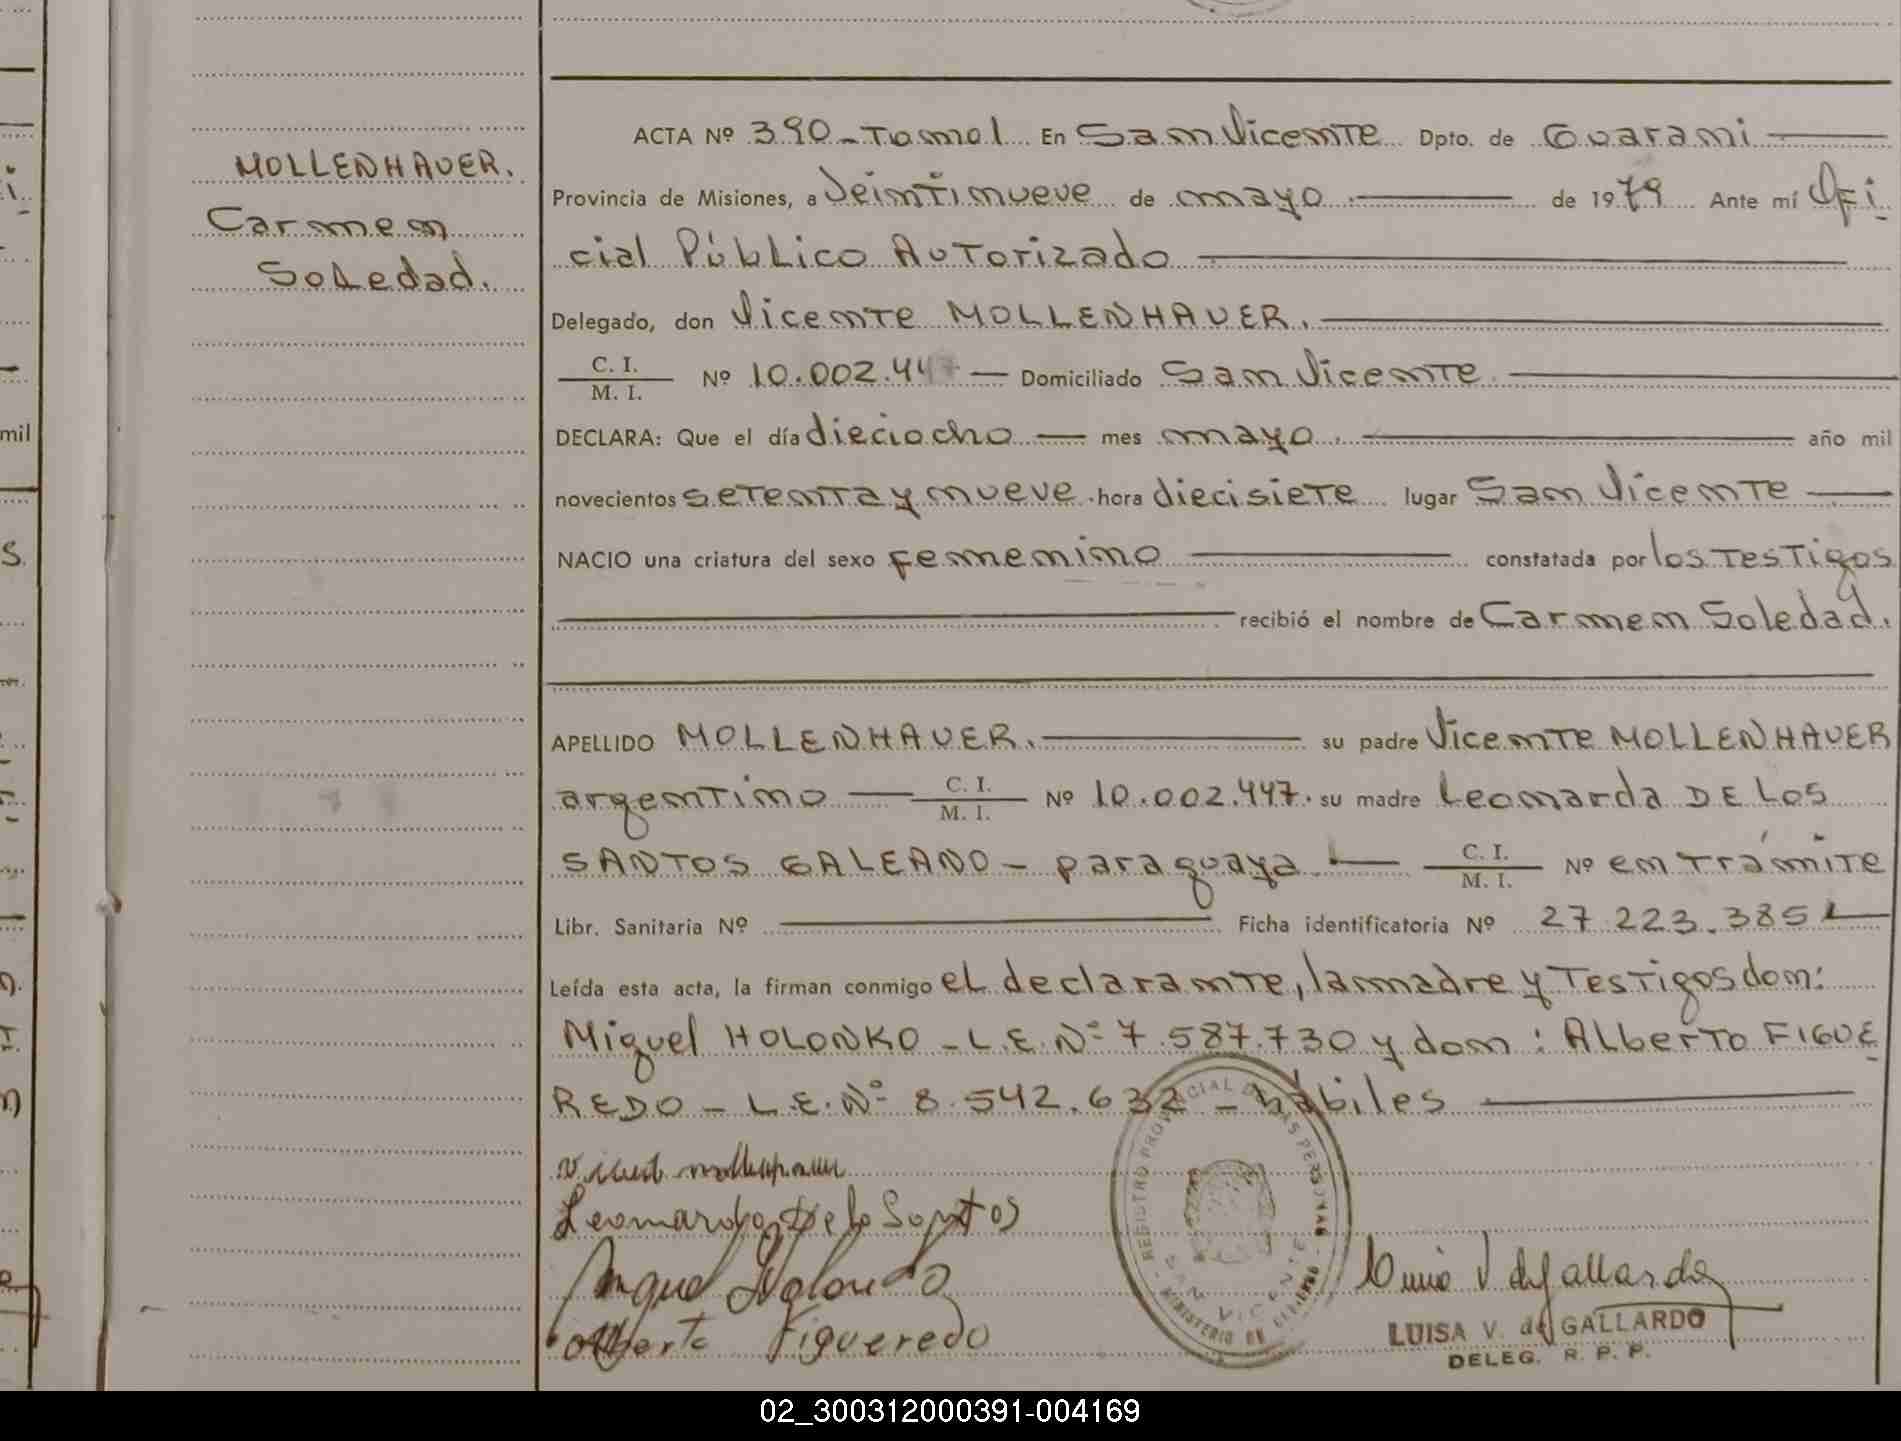 MOLLENHAUER.
Carmen
Soledad.
ACTA Nº 390-Tomo1 En San Vicente Dpto. de Guarani
Provincia de Misiones, a Veintinueve de mayo de 1979 Ante mí Ofi
cial Público Autorizado
Delegado, don Vicente MOLLENHAUER.
C. I.
M. I. Nº 10.002.447 Domiciliado San Vicente
DECLARA: Que el día dieciocho mes mayo. año mil
novecientos setenta y nueve hora diecisiete lugar San Vicente
NACIO una criatura del sexo femenino constatada por los Testigos
recibió el nombre de Carmen Soledad.
APELLIDO MOLLENHAUER. su padre Vicente MOLLENHAUER
argentino C. I. M. I. Nº 10.002.447. su madre Leonarda DE LOS
SANTOS GALEANO - paraguaya. C. I. M. I. Nº en trámite
Libr. Sanitaria Nº Ficha identificatoria Nº 27 223.385
Leída esta acta, la firman conmigo el declarante, la madre y Testigos don:
Miguel HOLONKO - L.E. Nº 7.587.730 y don: Alberto FIGUE
REDO - L.E. Nº 8.542.632 - hábiles
Leonarda De lo Santos
Alberto Figueredo
REGISTRO PROVINCIAL DE LAS PERSONAS
SAN VICENTE
MINISTERIO DE GOBIERNO
LUISA V. de GALLARDO
DELEG. R. P. P.
mil
02_300312000391-004169